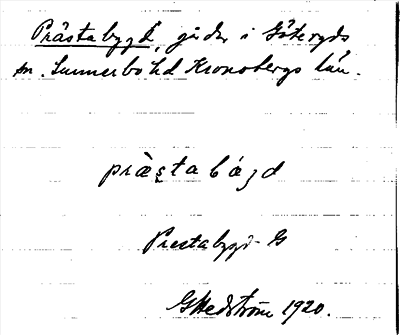 Prästabygd, gårdar i Göteryds
sn. Sunnerbo hd Kronobergs län.
prästabygd
Prestabygd G
GHedström 1920.